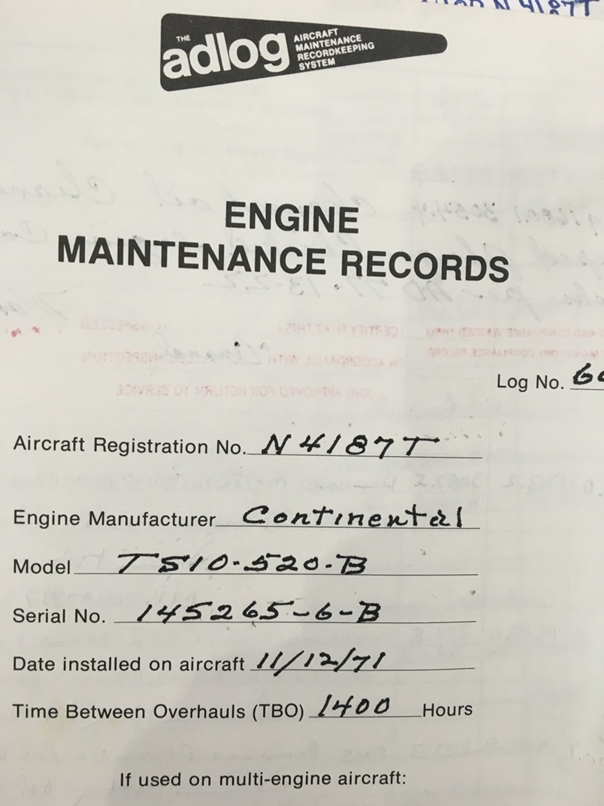 N 4187T
THE adlog AIRCRAFT
MAINTENANCE
RECORDKEEPING
SYSTEM
ENGINE
MAINTENANCE RECORDS
Log No.
Aircraft Registration No. N4187T
Engine Manufacturer Continental
Model TS10-520-B
Serial No. 145265-6-B
Date installed on aircraft 11/12/71
Time Between Overhauls (TBO) 1400 Hours
If used on multi-engine aircraft: